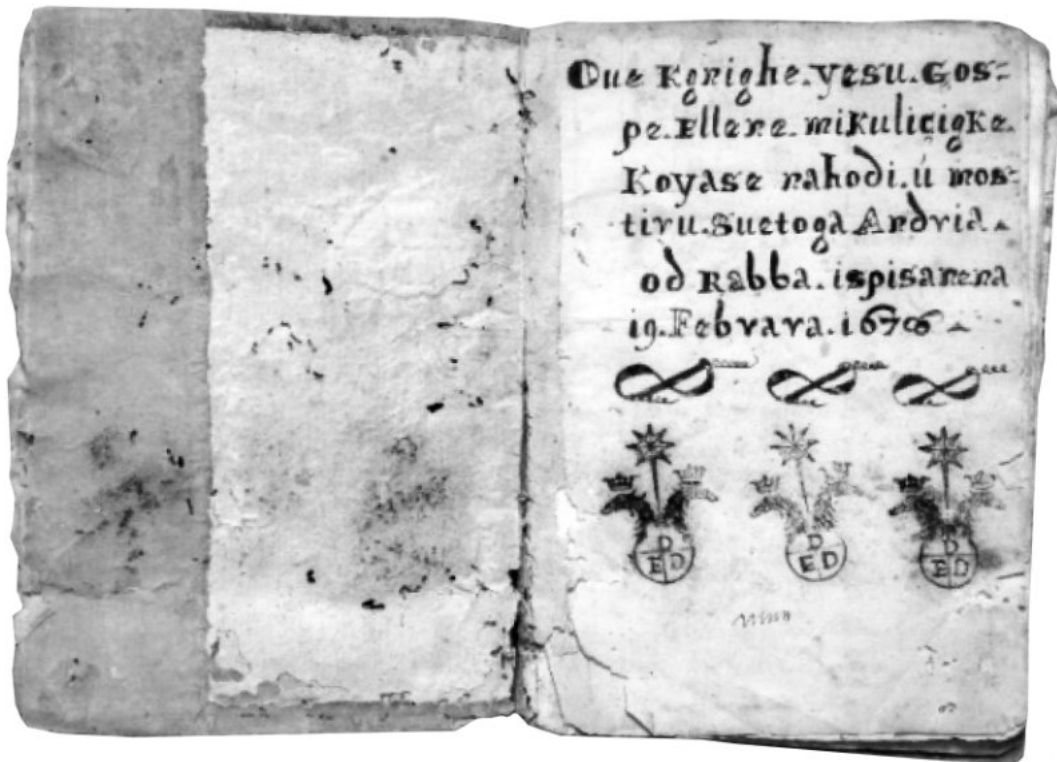 Oue Kgnighe. yesu. Gos=
pe. Ellene. mikulicigke.
Koyase nahodi. ú mos=
tiru. Suetoga Andria.
od Rabba. ispisanena
19. Febrara. 1676
D
E D
D
E D
D
E D